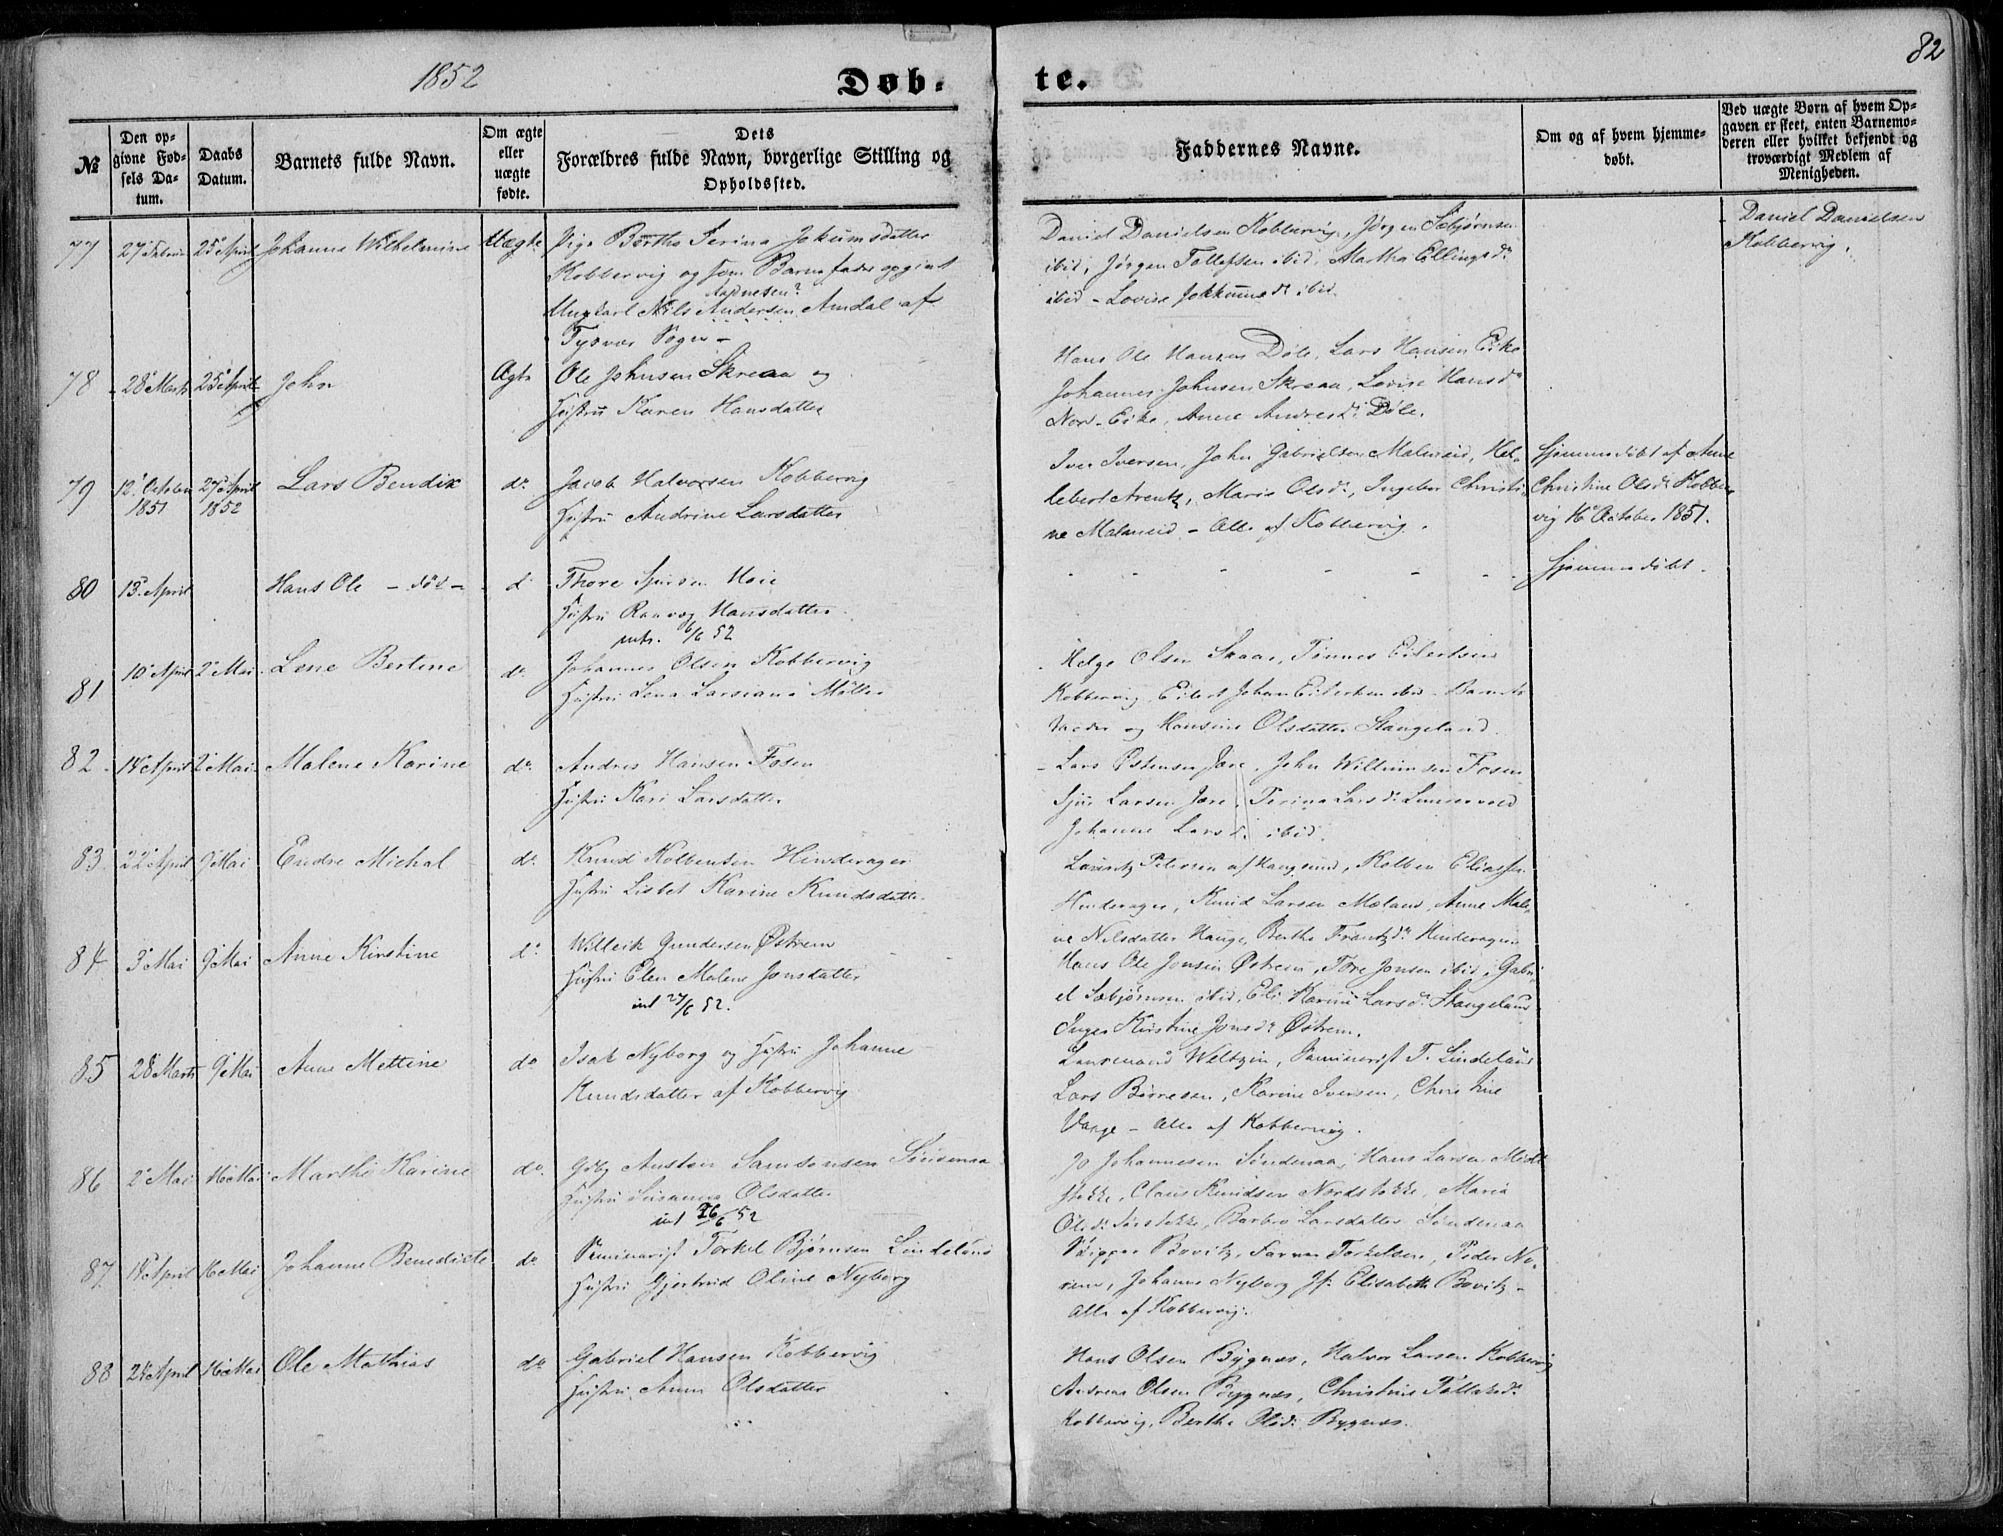 82
1852
Døb- te.
№
Den opgivne Fødsels Datum.
Daabs Datum.
Barnets fulde Navn.
Om ægte eller uægte fødte.
Dets Forældres fulde Navn, borgerlige Stilling og Opholdssted.
Faddernes Navne.
Om og af hvem hjemmedøbt.
Ved uægte Børn af hvem Opgaven er skeet, enten Barnemoderen eller hvilket bekjendt og troværdigt Medlem af Menigheden.
77 27 Febru 25 April Johanne Wilhelmine Uægte Pige Berthe Serina Jokumsdatter
Kobbervig og som Barnefader opgivet
Aadnesen?
Ungkarl Nils Andersen Amdal af
Tysvær Sogn –
Daniel Danielsen Kobbervig, Jørgen Sæbjørnsen
ibid, Jørgen Tollefsen ibid, Martha Ellingsdr
ibid – Lovise Jokkumsdr ibid.
Daniel Danielsen
Kobbervig.
78 28 Marts 25 April John Ægte Ole Johnsen Skreaa og
Hustru Karen Hansdatter
Hans Ole Hansen Døle, Lars Hansen Eike
Johannes Johnsen Skreaa, Lovise Hansdr
Nor-Eike, Anne Andresdr Døle.
79 12 October 1851 27 April 1852 Lars Bendix do Jacob Halvorsen Kobbervig
Hustru Andrine Larsdatter
Iver Iversen, John Gabrielsen Malmeid, Hel-
lebert Arentz, Maria Olsdr, Ingebor Christi-
ne Malmeid – Alle af Kobbervig.
Hjemmedøbt af Anne
Christine Olsdr Kobber
vig 16 October 1851.
80 13 April Hans Ole – død – do Thore Sjursen Hoie
Hustru Raavæg Hansdatter
intr. 6/6 52
Hjemmedøbt.
81 10 April 2 Mai Lene Bertine do Johannes Olsen Kobbervig
Hustru Lena Larsiane Møller
Helge Olsen Skaar, Tønnes Eilertsen
Kobbervig, Eilert Johan Eilertsen ibid – Barnets
Fader og Hansine Olsdatter Stangeland.
82 14 April 2 Mai Malene Karine do Andres Hansen Fosen
Hustru Kari Larsdatter
Lars Østensen Jære, John Willumsen Fosen
Sjur Larsen Jære, Serina Larsdr
Johanne Larsdr ibid.
83 22 April 9 Mai Endre Michal do Knud Kolbensen Hinderager
Hustru Lisbet Karine Knudsdatter
Lauritz Petersen af Haugesund, Kolben Eliassen
Hinderager, Knud Larsen Mæland, Anne Male-
ne Nilsdatter Hauge, Berthe Frantzdr Hinderager
84 3 Mai 9 Mai Anne Kirstine do Willeik Gundersen Østrem
Hustru Elen Malene Jonsdatter
int 27/6 52.
Hans Ole Jonsen Østrem, Tore Jonsen ibid, Gabri-
el Sæbjørnsen ibid, Eli Karine Larsdr Stangeland
Inger Kirstine Jonsdr Østrem.
85 28 Marts 9 Mai Anne Mettine do Isak Nyborg og Hustru Johanne
Knudsdatter af Kobbervig
Weltzin, Seminarist T. Lindeland
Lars Børresen, Karine Iversen, Christine
Vange – Alle af Kobbervig.
86 2 Mai 16 Mai Marthe Karine do Gdbg Austen Samsonsen Søndenaa
Hustru Susanna Olsdatter
int 26/6 52
Jo Johannesen Søndenaa, Hans Larsen Midt
stokke, Claus Knudsen Nordstokke, Maria
Olsdr Sørstokke, Barbro Larsdatter Søndenaa
87 14 April 16 Mai Johanne Benedicte do Seminarist Torkel Bjørnsen Lindeland
Hustru Gjertrud Oline Nyborg
Skipper Bovitz, Farver Torkelsen, Peder No-
rem, Johanne Nyborg Jf. Elisabeth Bovitz –
Alle af Kobbervig.
88 24 April 16 Mai Ole Mathias do Gabriel Hansen Kobbervig
Hustru Anne Olsdatter
Hans Olsen Bygnæs, Halvor Larsen Kobbervig
Andreas Olsen Bygnæs, Christine Tollefsdr
Kobbervig, Berthe Olsdr Bygnæs.